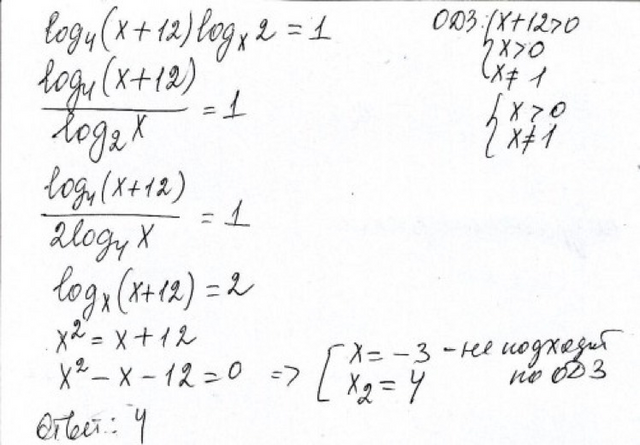 log₄(x+12)logₓ2 = 1
ОДЗ: { x+12>0
x>0
x≠1
log₄(x+12) / log₂x = 1
{ x>0
x≠1
log₄(x+12) / 2log₄x = 1
logₓ(x+12) = 2
x² = x+12
x² - x - 12 = 0 => [ x = -3 - не подходит по ОДЗ
x₂ = 4
Ответ: 4